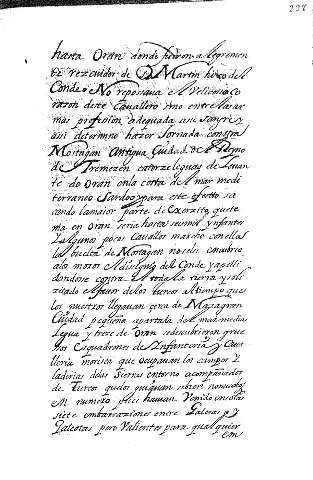 hasta Oran donde fueron alegremen
te recevidos de D Martin hijo del
Conde No reposava el Velicoso Co
razon deste Cavallero sino entre las ar
mas profesion adequada asu sangre y
asi determino hazer Jornada contra
Mostagan Antigua Ciudad del Reyno
de Tremezen catorze leguas de Levan
te de Oran en la costa del mar medi
terraneo Sardoo y para este efecto sa
cando la maior parte de exercito que te
nia en Oran seria hasta seis mil ynfantes
y algunos pocos Cavallos marcho con ellas
la buelta de Mostagan no se les encubrio
alos moros el disignio del Conde y apelli
dandose contra el toda la tierra y soli
zitado el favor de los turcos al tiempo que
los nuestros llegavan cerca de Mazagran
Ciudad pequeña apartada del mar media
legua y treze de Oran se descubrieron grue
sos Esquadrones de Infanteria y Cava
lleria morisca que ocupavan los campos y
laderias delas sierras entorno acompañados
de Turcos que los guiavan
en numero pues havian Venido en solas
siete embarcaziones entre Galeras y
Galeotas pero Valientes para qualquier
em